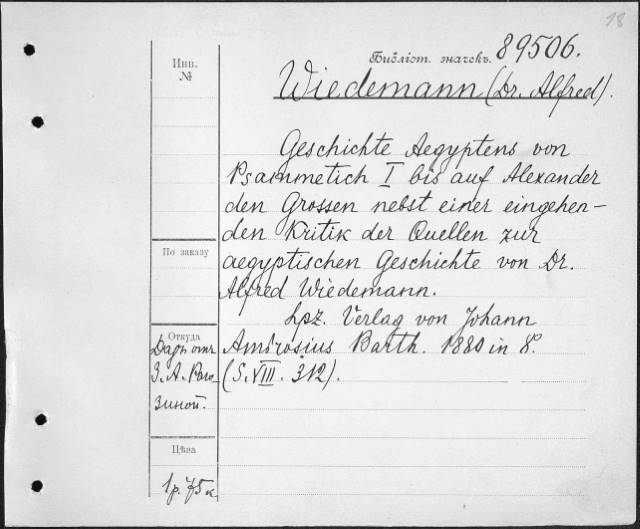 18
Инв.
№
Библіот. значекъ. 89506.
Wiedemann (Dr. Alfred).
Geschichte Aegyptens von
Psammetich I bis auf Alexander
den Grossen nebst einer eingehen-
den Kritik der Quellen zur
aegyptischen Geschichte von Dr.
Alfred Wiedemann.
Lpz. Verlag von Johann
Ambrosius Barth. 1880 in 8º.
(S. VIII. 312).
По заказу
Откуда
Даръ отъ
З. А. Раго-
зиной.
Цѣна
1 р. 75 к